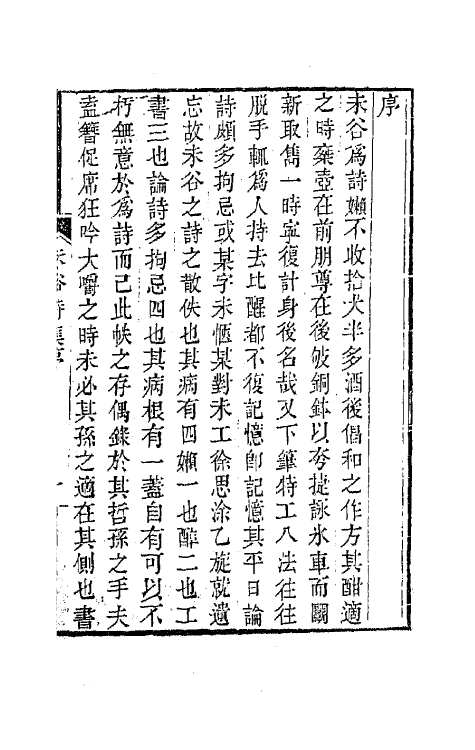 序
未谷爲詩嬾不收拾大半多酒後倡和之作方其酣適
之時雍壺在前朋尊在後破銅鉢以夸捷詠氷車而鬭
新取雋一時寧復計身後名哉又下籜特工八法往往
脫手輒爲人持去比醒都不復記憶卽記憶其平日論
詩頗多拘忌或某字未愜某對未工徐思涂乙旋就遺
忘故未谷之詩之散佚也其病有四嬾一也醉二也工
書三也論詩多拘忌四也其病根有一蓋自有可以不
朽無意於爲詩而已此帙之存偶錄於其哲孫之手夫
盍簪促席狂吟大嚼之時未必其孫之適在其側也書
未谷詩集序
一